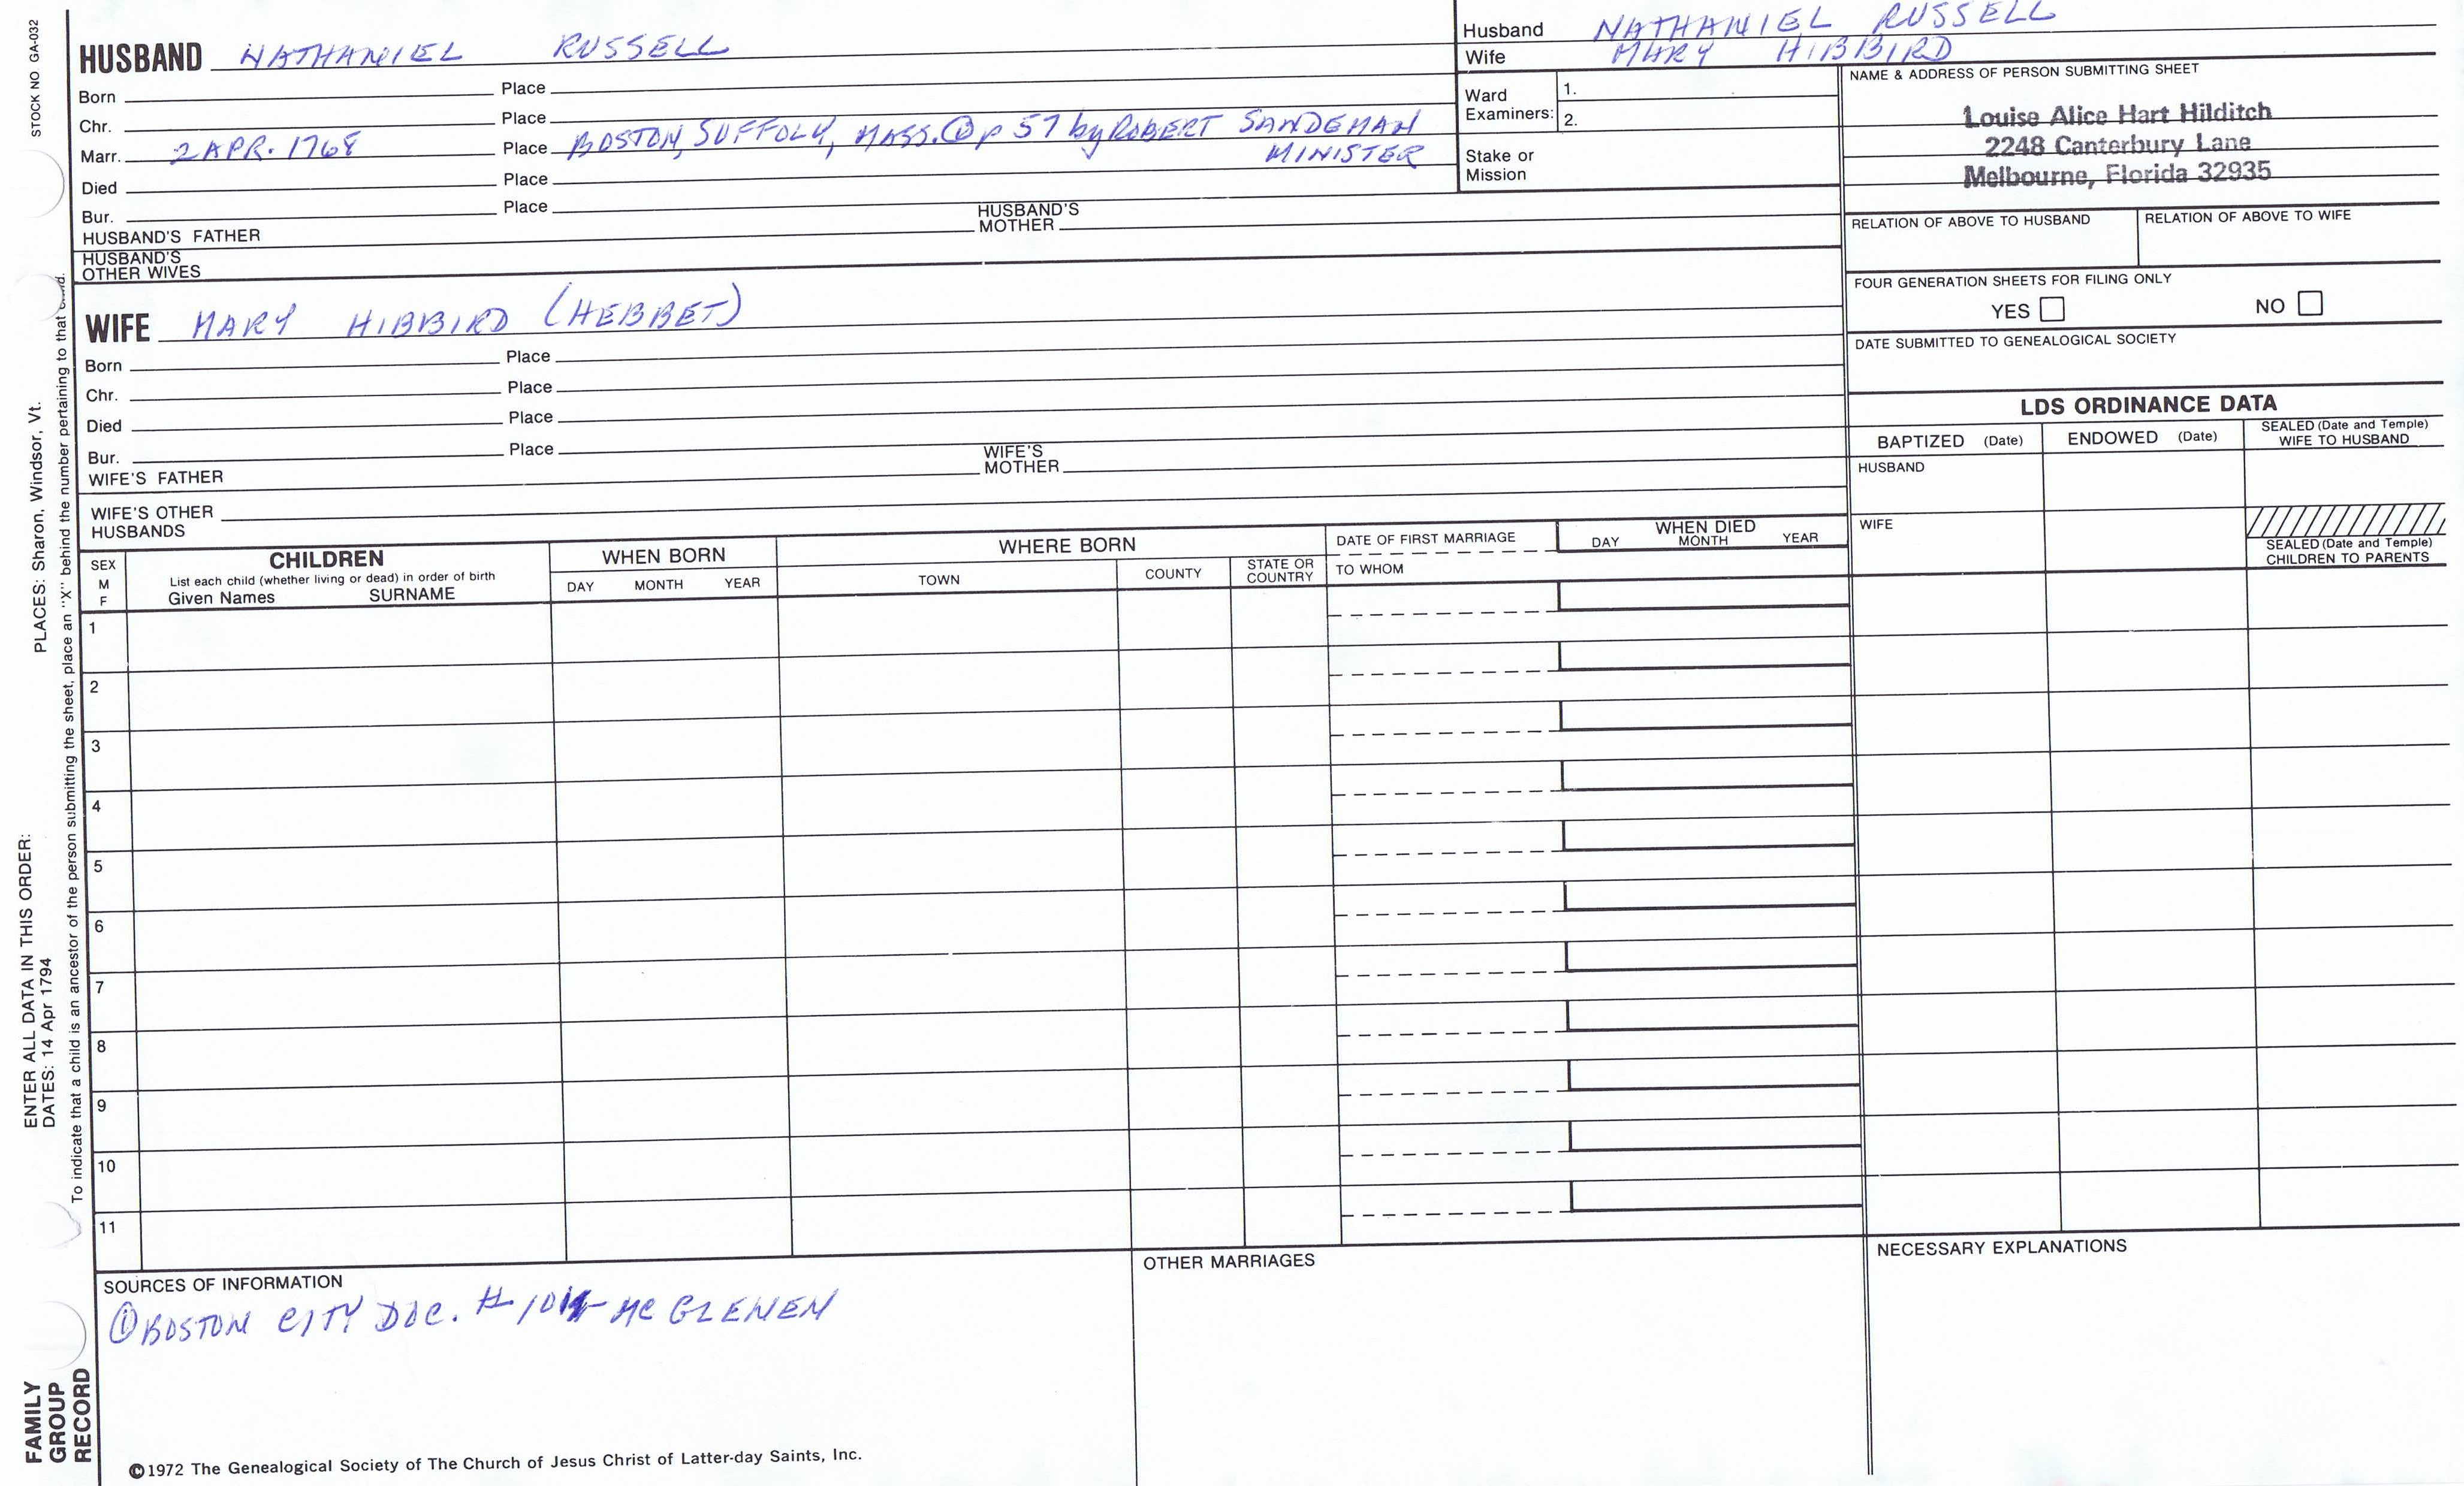 STOCK NO. GA-032
HUSBAND NATHANIEL RUSSELL
Born Place
Chr. Place
Marr. 2 APR. 1768 Place BOSTON, SUFFOLK, MASS. ① p 57 by ROBERT SANDEMAN
MINISTER
Died Place
Bur. Place
HUSBAND'S FATHER HUSBAND'S MOTHER
HUSBAND'S
OTHER WIVES
Husband NATHANIEL RUSSELL
Wife MARY HIBBIRD
Ward
Examiners:
1.
2.
Stake or
Mission
NAME & ADDRESS OF PERSON SUBMITTING SHEET
Louise Alice Hart Hilditch
2248 Canterbury Lane
Melbourne, Florida 32935
RELATION OF ABOVE TO HUSBAND RELATION OF ABOVE TO WIFE
FOUR GENERATION SHEETS FOR FILING ONLY
YES NO
DATE SUBMITTED TO GENEALOGICAL SOCIETY
WIFE MARY HIBBIRD (HEBBET)
Born Place
Chr. Place
Died Place
Bur. Place
WIFE'S FATHER WIFE'S MOTHER
WIFE'S OTHER
HUSBANDS
LDS ORDINANCE DATA
BAPTIZED (Date) ENDOWED (Date) SEALED (Date and Temple)
WIFE TO HUSBAND
HUSBAND
WIFE
SEALED (Date and Temple)
CHILDREN TO PARENTS
SEX
M
F
CHILDREN
List each child (whether living or dead) in order of birth
Given Names SURNAME
WHEN BORN
DAY MONTH YEAR
WHERE BORN
TOWN COUNTY STATE OR
COUNTRY
DATE OF FIRST MARRIAGE
TO WHOM
WHEN DIED
DAY MONTH YEAR
1
2
3
4
5
6
7
8
9
10
11
SOURCES OF INFORMATION
① BOSTON CITY DOC. # MC GLENEN
OTHER MARRIAGES
NECESSARY EXPLANATIONS
©1972 The Genealogical Society of The Church of Jesus Christ of Latter-day Saints, Inc.
FAMILY
GROUP
RECORD
ENTER ALL DATA IN THIS ORDER:
DATES: 14 Apr 1794
PLACES: Sharon, Windsor, Vt.
To indicate that a child is an ancestor of the person submitting the sheet, place an "X" behind the number pertaining to that child.